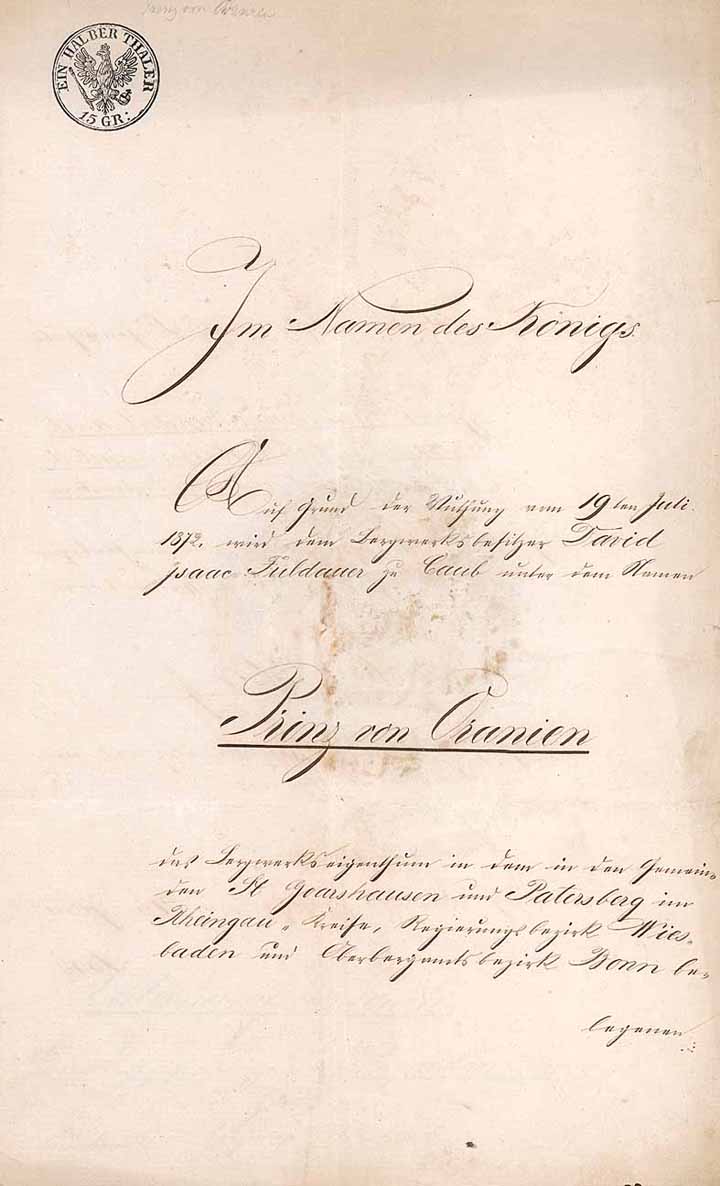 Prinz von Oranien
EIN HALBER THALER
15 GR:
Im Namen des Königs.
Auf Grund der Muthung vom 19ten Juli
1872. wird dem Bergwerksbesitzer David
Isaac Fuldauer zu Caub unter dem Namen
Prinz von Oranien
das Bergwerkseigenthum in dem in den Gemein-
den St Goarshausen und Patersberg im
Rheingau-Kreise, Regierungsbezirk Wies-
baden und Oberbergamtsbezirk Bonn be-
legenen